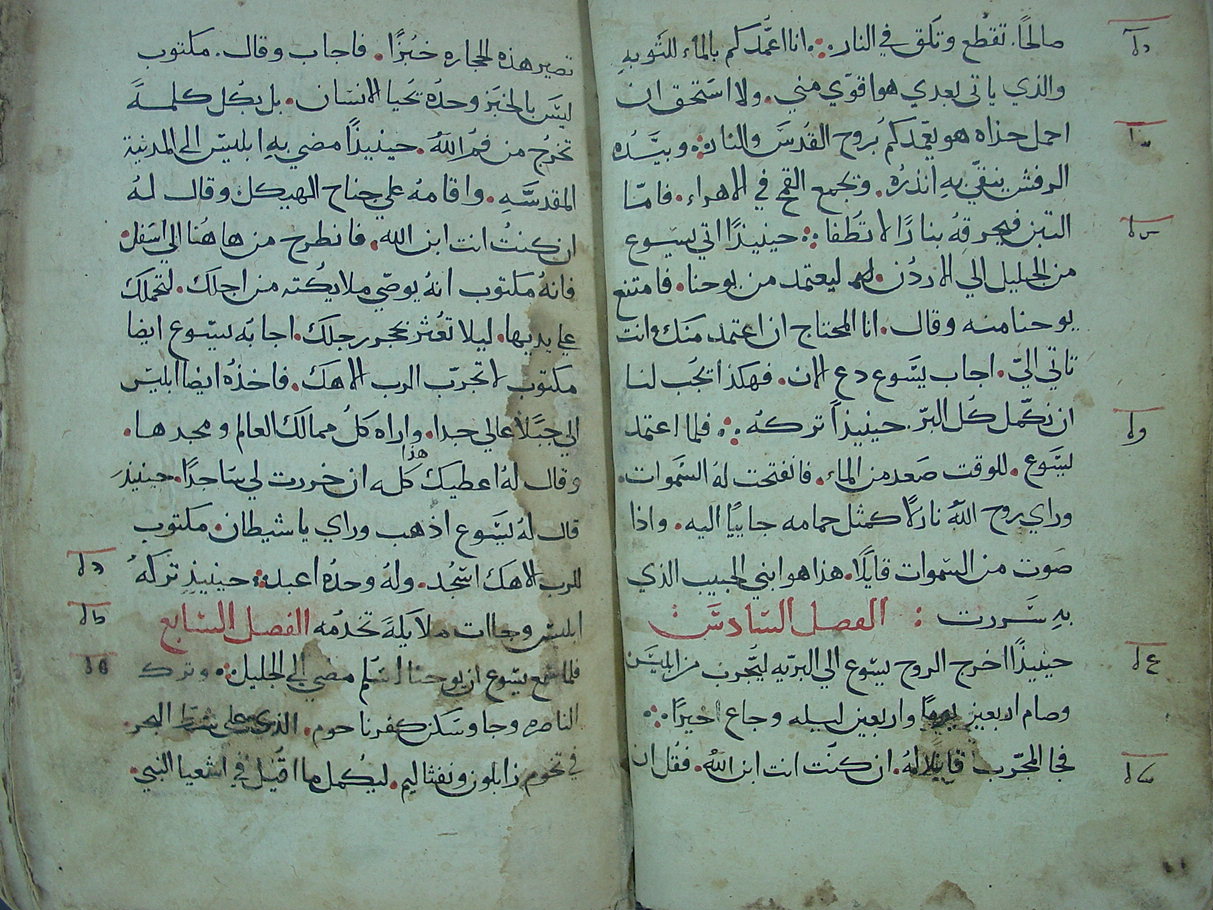 صالحًا. تقطع وتلق في النار. انا اعمدكم بالماء للتوبه
والذي ياتى بعدي هوا قوي مني. ولا استحق ان
احمل حذاه هو يعمدكم بروح القدس والنار. وبيده
الرفش ينقي به اندره. وتجمع القمح في الاهراء. فامّا
التبن فيحرقهُ بنارًا لا تطفا. حينيذًا اتي يسوع
من الجليل الي الاردن. ليعتمد من يوحنا. فامتنع
يوحنا منه وقال. انا المحتاج ان اعتمد منك وانت
تاتي اليّ. اجاب يسوع دع الان. فهكذا يجب لنا
ان نكمل كُل البرّ. حينيذاً تركهُ. فلما اعتمد
يسوع. للوقت صعد من الماء. فانفتحت لهُ السموات.
وراي روح الله نازلًا كمثل حمامه جاييًا اليه. واذا
صوت من السموات قايلًا. هذا هوا بني الحبيب الذي
به سررت : الفصل السادس
حينيذًا اخرج الروح يسوع الي البريه ليجرب من ابليس
وصام اربعين يومًا واربعين ليله وجاع اخيرًا.
فجا المجرّب قايلًا لهُ. ان كنت انت ابن الله. فقُل ان
تصير هذه الحجاره خبزًا. فاجاب وقال. مكتوب
ليس بالخبز وحدُه تحيا الانسان. بل بكل كلمة
تخرج من فم الله. حينيذًا مضي بهِ ابليس الى المدينة
المقدسَّهِ. واقامه علي جناح الهيكل. وقال لهُ
ان كنتُ انت ابن الله. فانطرح من هاهُنا الي اسفل.
فانهُ مكتوب انهُ يوصّي ملايكته من اجلك. لتحملك
علي يديها. ليلا تعثر بحجر رجلك. اجابه يسوع ايضا
مكتوب لا تجرّب الرب الاهك. فاخذهُ ايضا ابليس
الي جبلًا عالي جدا. واراه كلُ ممالك العالم ومجدها.
وقال لهُ اعطيك هذا كله ان خررت لي ساجدًا. حينيذ
قال لهُ يسوع اذهب وراي ياشيطان. مكتوب
للرب الاهك اسجُد. ولهُ وحدُه اعبد. حينيذ تركهُ
ابليس وجاات ملايكة تخدمُه الفصل السابع
فلما سمع يسوع ان يوحنا اسلم مضي الى الجليل. وترك
الناصره وجا وسكن كفرناحوم. الذي على شط البحر.
في تخوم زابلون ونفتاليم. ليكمل ما اقيل في اشعيا النبي.